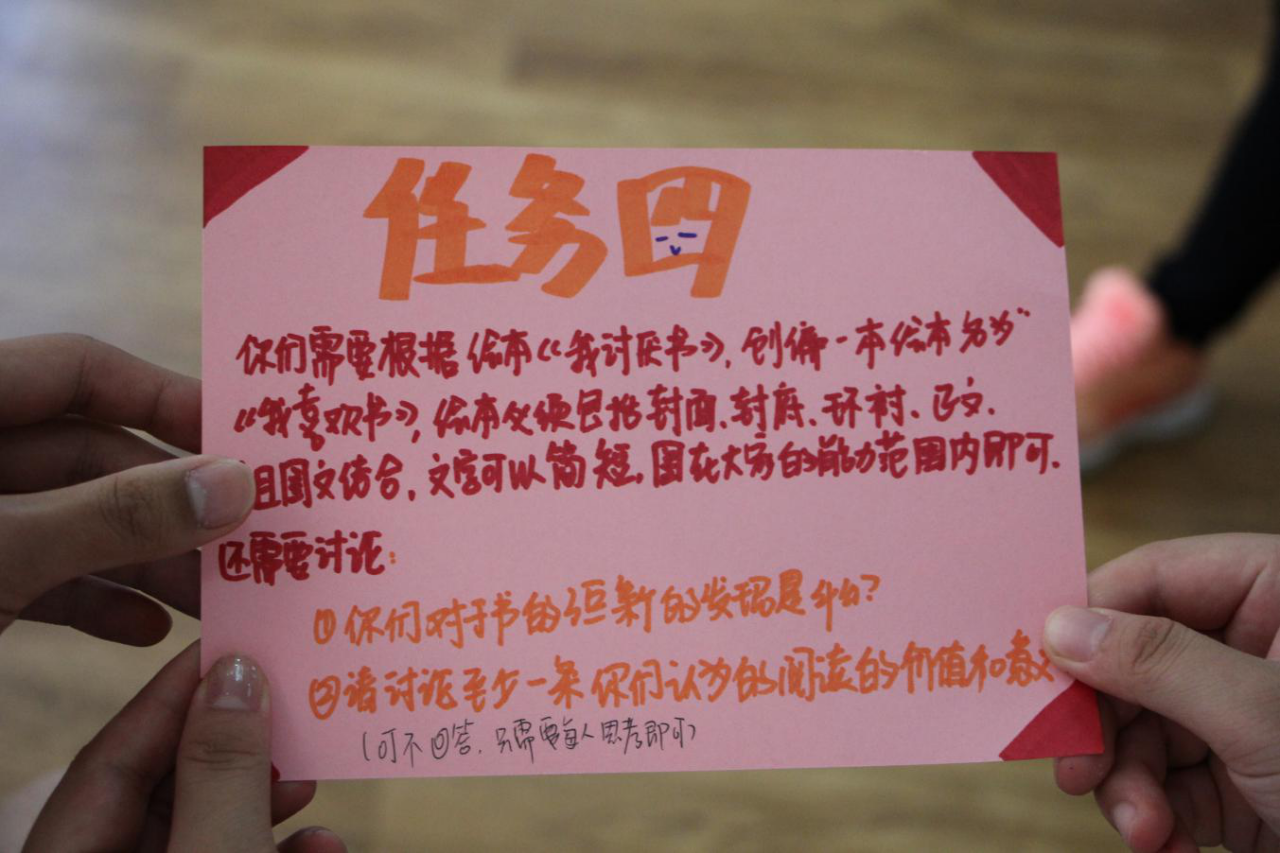 任务四
你们需要根据绘本《我讨厌书》,创编一本绘本名为“
《我喜欢书》,绘本必须包括封面、封底、环衬、正文.
且图文结合,文字可以简短,图在大家的能力范围内即可.
还需要讨论:
①你们对于书的新的发现是什么?
②请讨论至少一条你们认为的阅读的价值和意义
(可不回答.只需要每人思考即可)